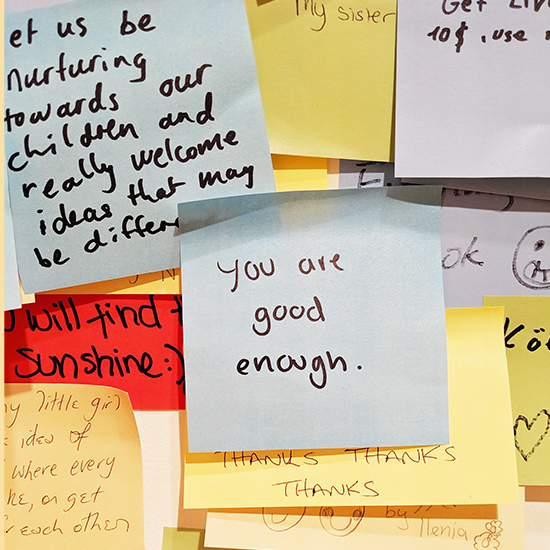 et us be
nurturing
towards our
children and
really welcome
ideas that may
be differ
My sister
Get
10$. use
You are
good
enough.
ok
will find
sunshine:)
my little girl
idea of
where every
ke, or get
each other
THANKS THANKS
THANKS
by
Ilenia